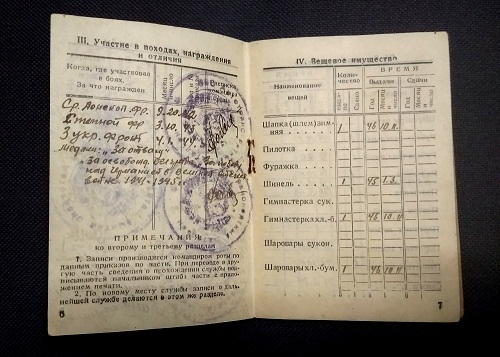 III. Участие в походах, награждения
и отличия
Когда, где участвовал
в боях.
За что награжден
Месяц
и число
Ср. Донской фр. 9.20. 42
Степной фр. 3.10. 43
3 укр. Фронт 4.1. 44
медаль: "За отвагу"
"За освобожд. Белграда"
над Германией в Великой Отеч.
войне 1941-1945 г."
ПРИМЕЧАНИЯ
ко второму и третьему разделам
1. Записи производятся командиром роты по
данным приказов по части. При переводе в дру-
гую часть сведения о прохождении службы
подписываются начальником штаба части с прило-
жением печати.
2. По новому месту службы записи о даль-
нейшей службе делаются в этом же разделе.
6
IV. Вещевое имущество
Наименование
вещей
Коли-
чество
ВРЕМЯ
Выдачи
Сдачи
Год
Месяц
и число
Год
Месяц
и число
Шапка (шлем) зим-
няя 1 46 10.11
Пилотка
Фуражка
Шинель 1 45 1.3
Гимнастерка сук.
Гимнастерка хл.-б. 1 46 10.11
Шаровары сукон.
Шаровары хл.-бум. 1 46 10.11
7